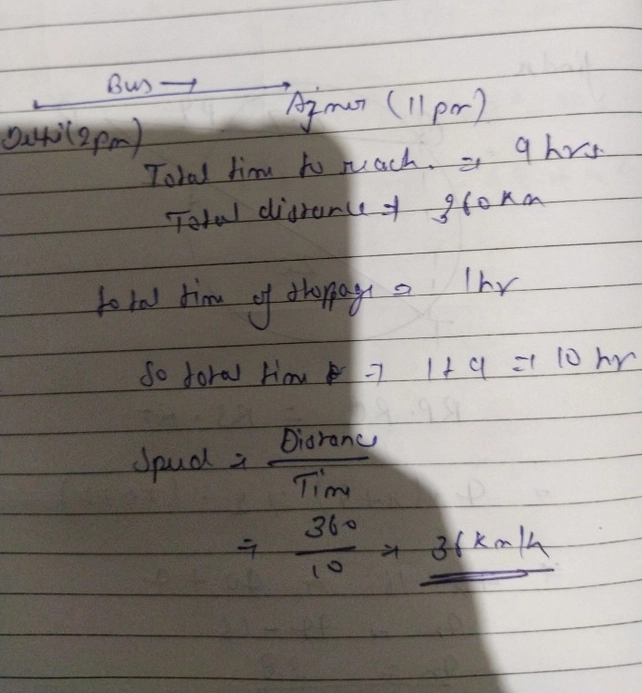 Bus →
Delhi (2 pm)
Ajmer (11 pm)
Total time to reach. ⇒ 9 hrs
Total distance ⇒ 360 Km
total time of stoppage ⇒ 1 hr
So total time ⇒ 1 + 9 ⇒ 10 hr
Speed ⇒ Distance
Time
⇒ 360
10
⇒ 36 Km/h